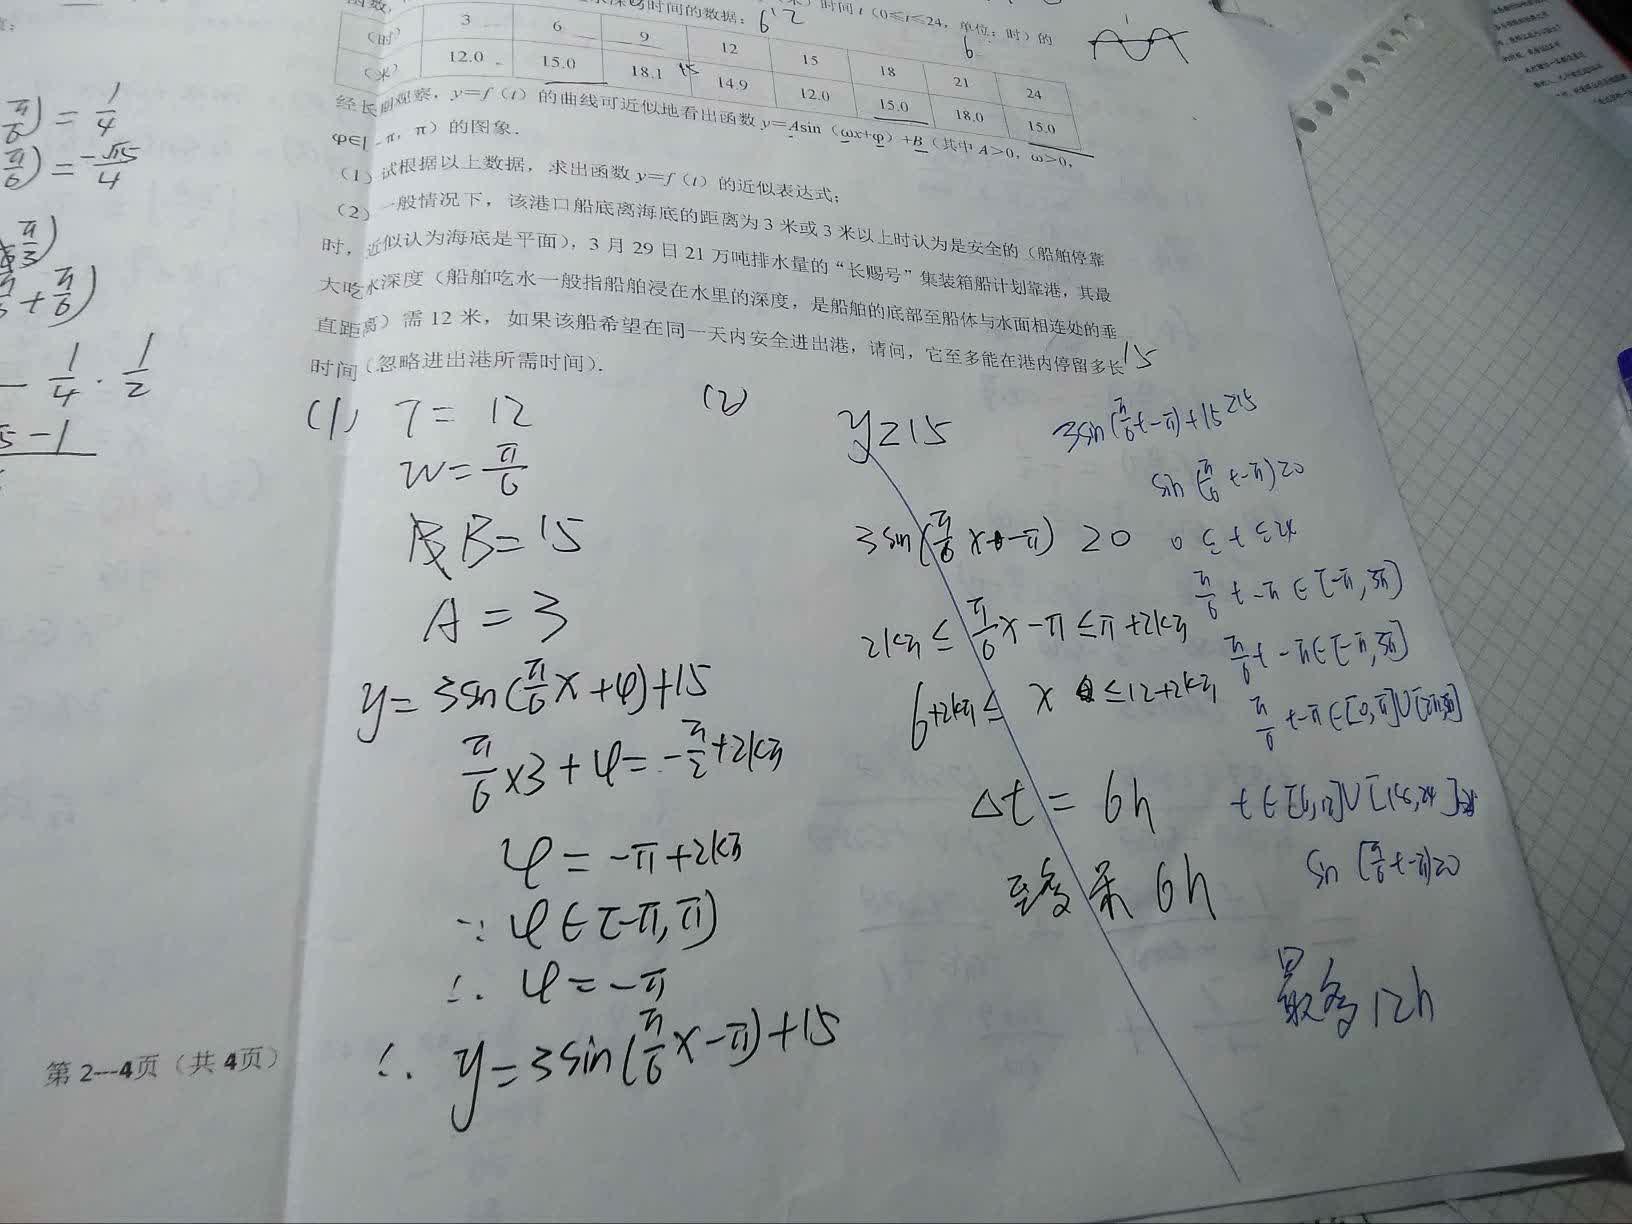 时间的数据：
时间 t（0≤t≤24，单位：时）的
（时） 3 6 9 12 15 18 21 24
（米） 12.0 15.0 18.1 14.9 12.0 15.0 18.0 15.0
经长期观察，y=f（t）的曲线可近似地看出函数 y=Asin（ωx+φ）+B（其中 A>0，ω>0，
φ∈[-π，π）的图象．
（1）试根据以上数据，求出函数 y=f（t）的近似表达式；
（2）一般情况下，该港口船底离海底的距离为 3 米或 3 米以上时认为是安全的（船舶停靠
时，近似认为海底是平面），3 月 29 日 21 万吨排水量的“长赐号”集装箱船计划靠港，其最
大吃水深度（船舶吃水一般指船舶浸在水里的深度，是船舶的底部至船体与水面相连处的垂
直距离）需 12 米，如果该船希望在同一天内安全进出港，请问，它至多能在港内停留多长
时间（忽略进出港所需时间）．
15
(1) T = 12
w = π/6
B = 15
A = 3
y = 3sin(π/6 x + φ) + 15
π/6 × 3 + φ = -π/2 + 2kπ
φ = -π + 2kπ
∵ φ ∈ [-π, π)
∴ φ = -π
∴ y = 3sin(π/6 x - π) + 15
(2) y ≥ 15
3sin(π/6 x - π) ≥ 0
2kπ ≤ π/6 x - π ≤ π + 2kπ
6 + 2kπ ≤ x ≤ 12 + 2kπ
Δt = 6h
至多呆 6h
3sin(π/6 t - π) + 15 ≥ 15
sin(π/6 t - π) ≥ 0
0 ≤ t ≤ 24
π/6 t - π ∈ [-π, 3π]
π/6 t - π ∈ [-π, 3π]
π/6 t - π ∈ [0, π] ∪ [2π, 3π]
t ∈ [6, 12] ∪ [18, 24]
sin(π/6 t - π) ≥ 0
最多 12h
π/6) = 1/4
π/6) = -√15/4
π/3)
+ π/6)
- 1/4 · 1/2
- 1
第 2---4页（共 4页）